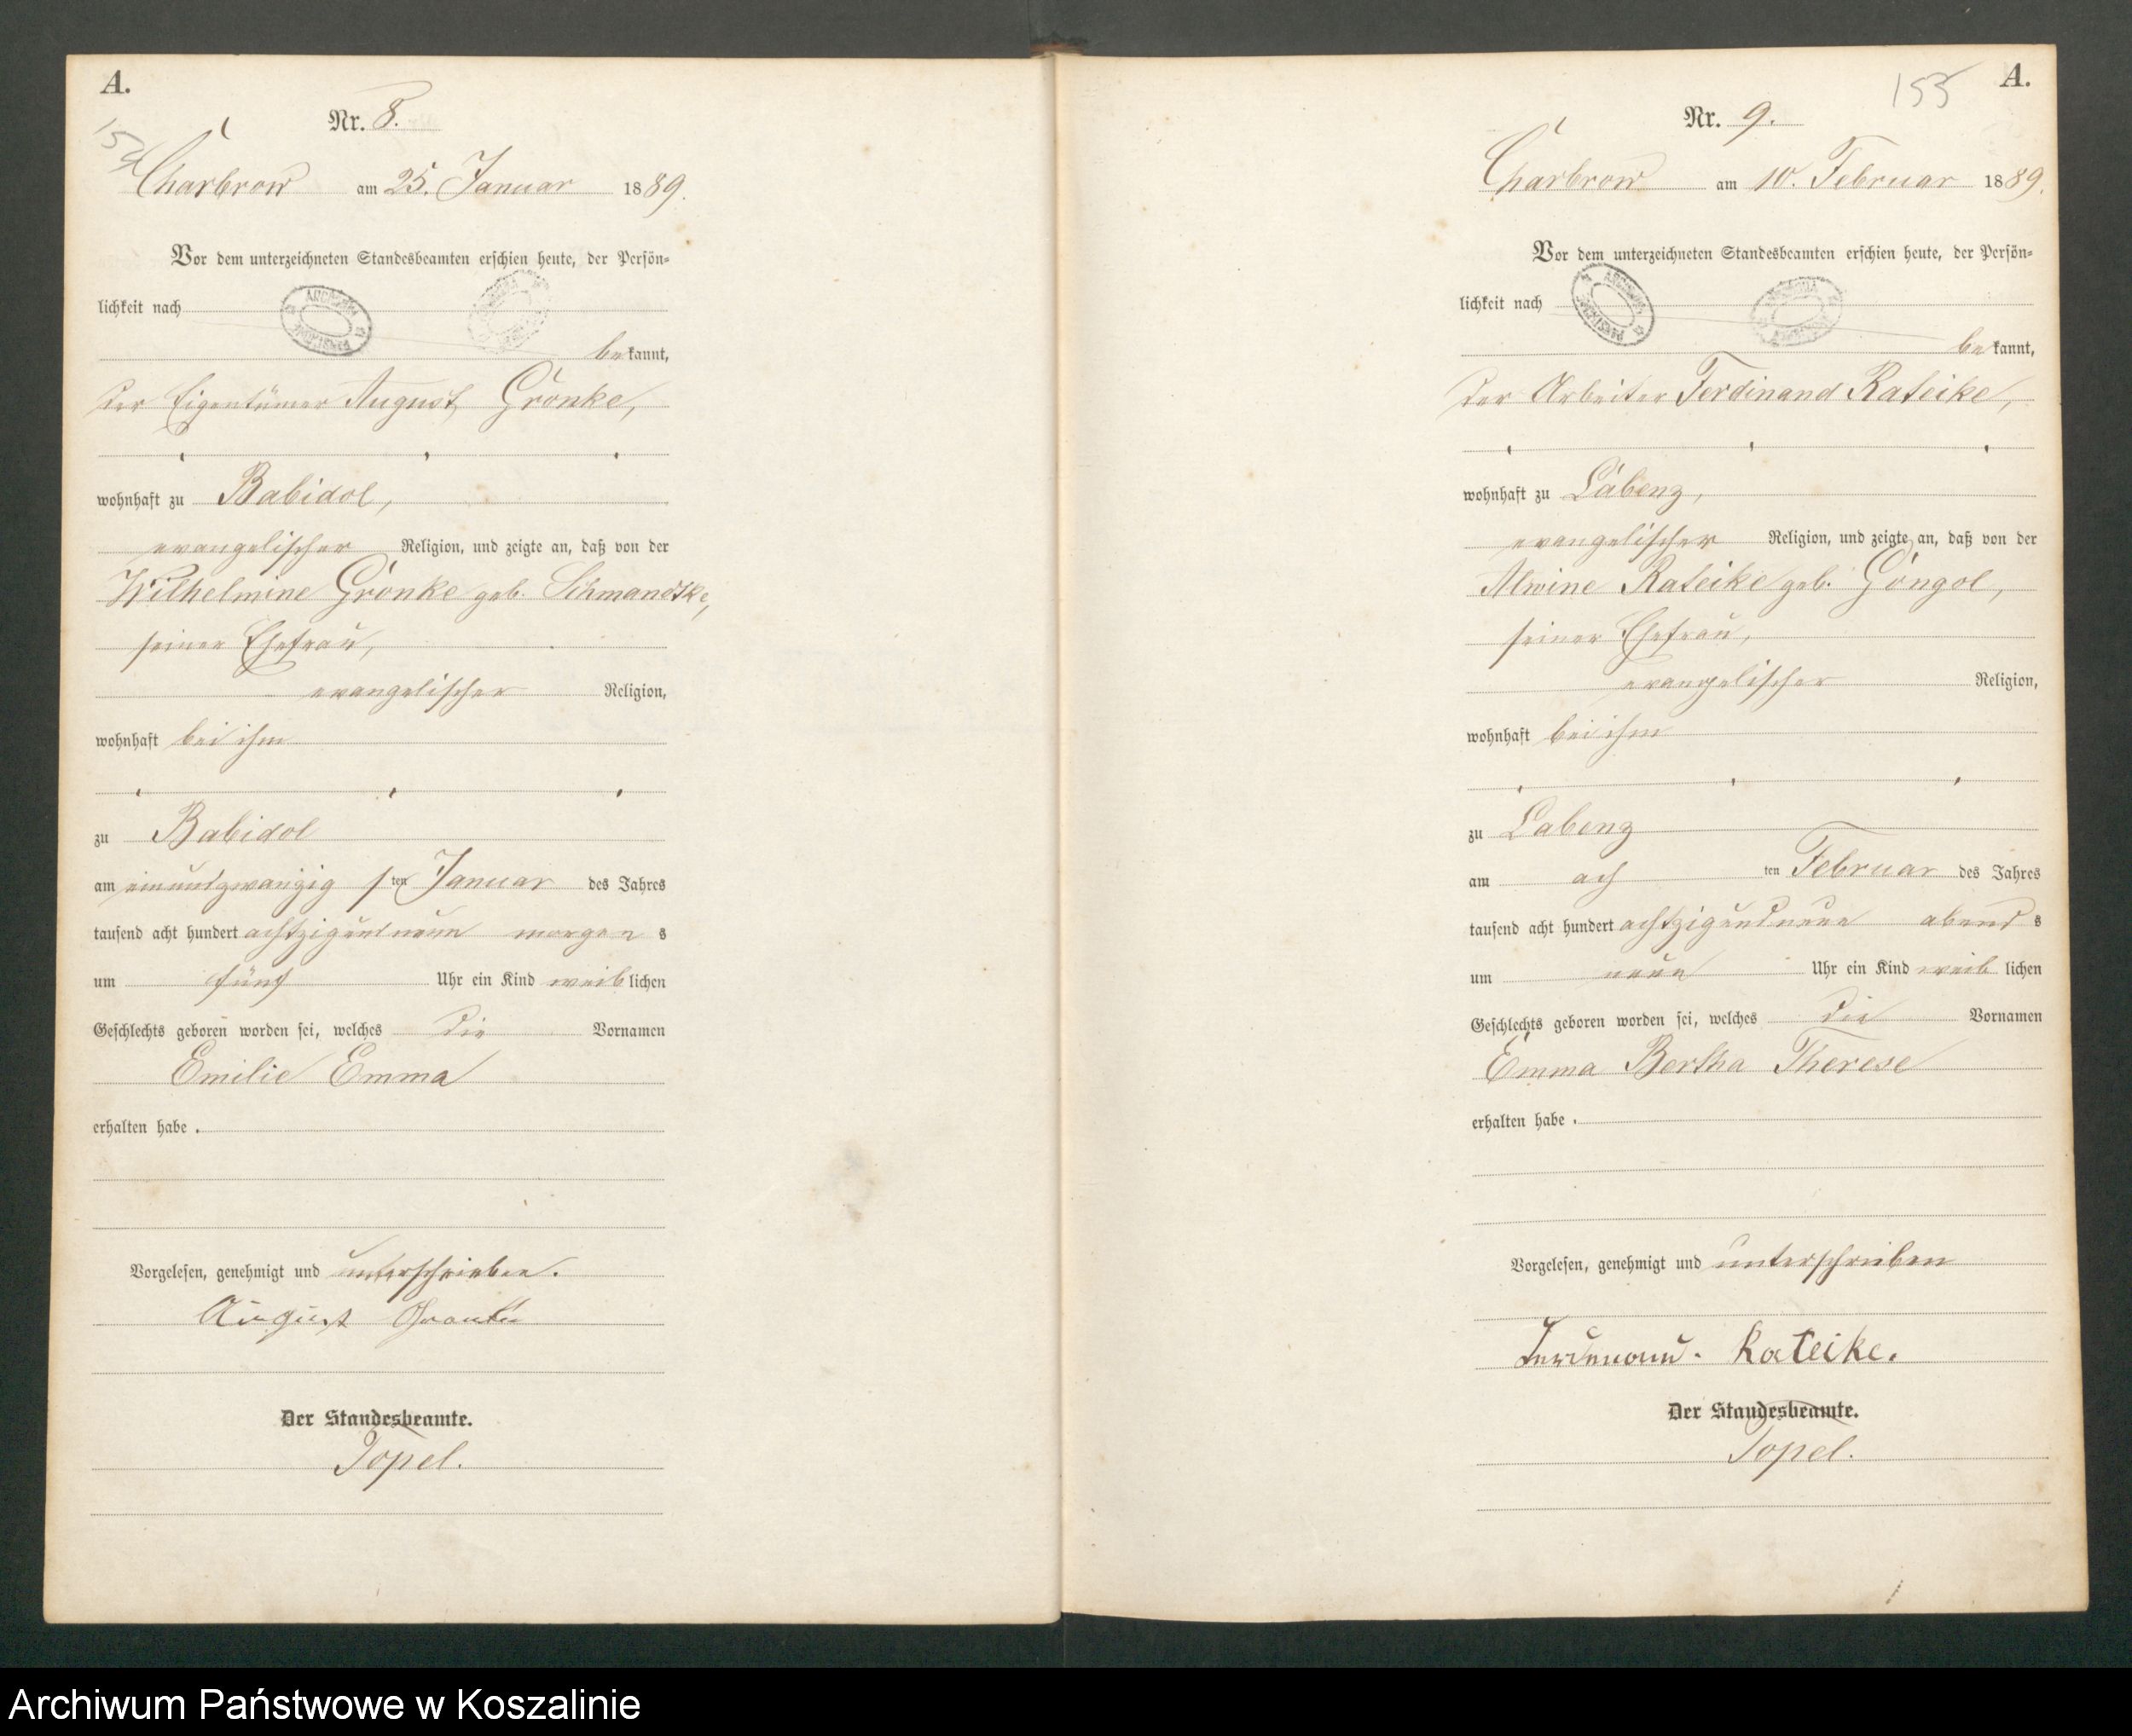 A.
154
Nr. 8.
Charbrow am 25. Januar 1889.
Vor dem unterzeichneten Standesbeamten erschien heute, der Persön=
lichkeit nach
bekannt,
der Eigentümer August Gronke,
wohnhaft zu Babidol,
evangelischer Religion, und zeigte an, daß von der
Wilhelmine Gronke geb. Schmandtke,
seiner Ehefrau,
evangelischer Religion,
wohnhaft bei ihm
zu Babidol
am einundzwanzigsten Januar des Jahres
tausend acht hundert achtzigundneun morgens
um fünf Uhr ein Kind weiblichen
Geschlechts geboren worden sei, welches die Vornamen
Emilie Emma
erhalten habe.
Vorgelesen, genehmigt und unterschrieben.
August Gronke
Der Standesbeamte.
Topel.
A.
155
Nr. 9.
Charbrow am 10. Februar 1889.
Vor dem unterzeichneten Standesbeamten erschien heute, der Persön=
lichkeit nach
bekannt,
der Arbeiter Ferdinand Rateike,
wohnhaft zu Labenz,
evangelischer Religion, und zeigte an, daß von der
Alwine Rateike geb. Göngol,
seiner Ehefrau,
evangelischer Religion,
wohnhaft bei ihm
zu Labenz
am achten Februar des Jahres
tausend acht hundert achtzigundneun abends
um neun Uhr ein Kind weiblichen
Geschlechts geboren worden sei, welches die Vornamen
Emma Bertha Therese
erhalten habe.
Vorgelesen, genehmigt und unterschrieben
Ferdenand. Rateike.
Der Standesbeamte.
Topel.
Archiwum Państwowe w Koszalinie